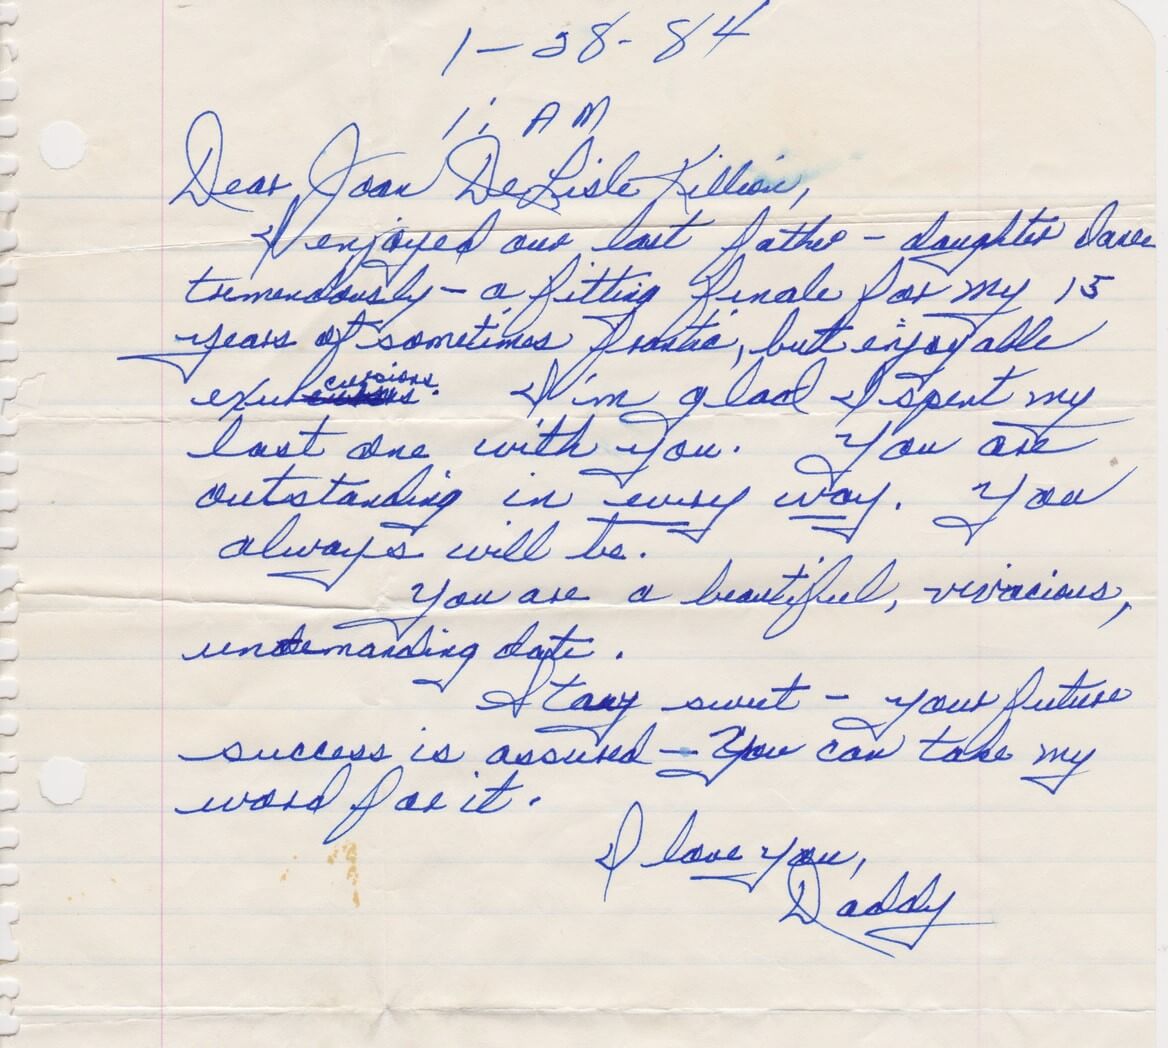 1-28-84
11 AM
Dear Joan DeLisle Killion,
I enjoyed our last father-daughter Dance
tremendously - a fitting finale for my 15
years of sometimes frantic, but enjoyable
excursions. I'm glad I spent my
last one with you. You are
outstanding in every way. You
always will be.
You are a beautiful, vivacious,
undemanding date.
Stay sweet - your future
success is assured - You can take my
word for it.
I love you,
Daddy